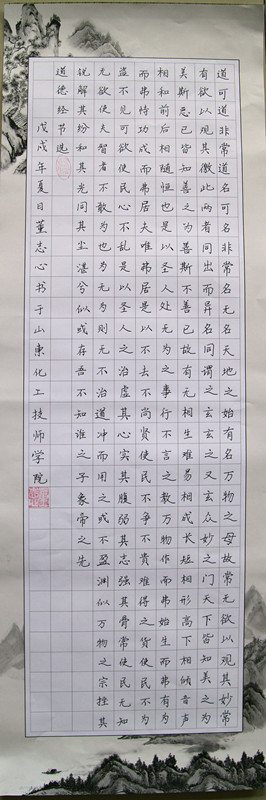 道可道非常道名可名非常名无名天地之始有名万物之母故常无欲以观其妙常
有欲以观其徼此两者同出而异名同谓之玄玄之又玄众妙之门天下皆知美之为
美斯恶已皆知善之为善斯不善已故有无相生难易相成长短相形高下相倾音声
相和前后相随恒也是以圣人处无为之事行不言之教万物作而弗始生而弗有为
而弗恃功成而弗居夫唯弗居是以不去不尚贤使民不争不贵难得之货使民不为
盗不见可欲使民心不乱是以圣人之治虚其心实其腹弱其志强其骨常使民无知
无欲使夫智者不敢为也为无为则无不治道冲而用之或不盈渊似万物之宗挫其
锐解其纷和其光同其尘湛兮似或存吾不知谁之子象帝之先
道德经节选
戊戌年夏日董志心书于山東化工技师学院